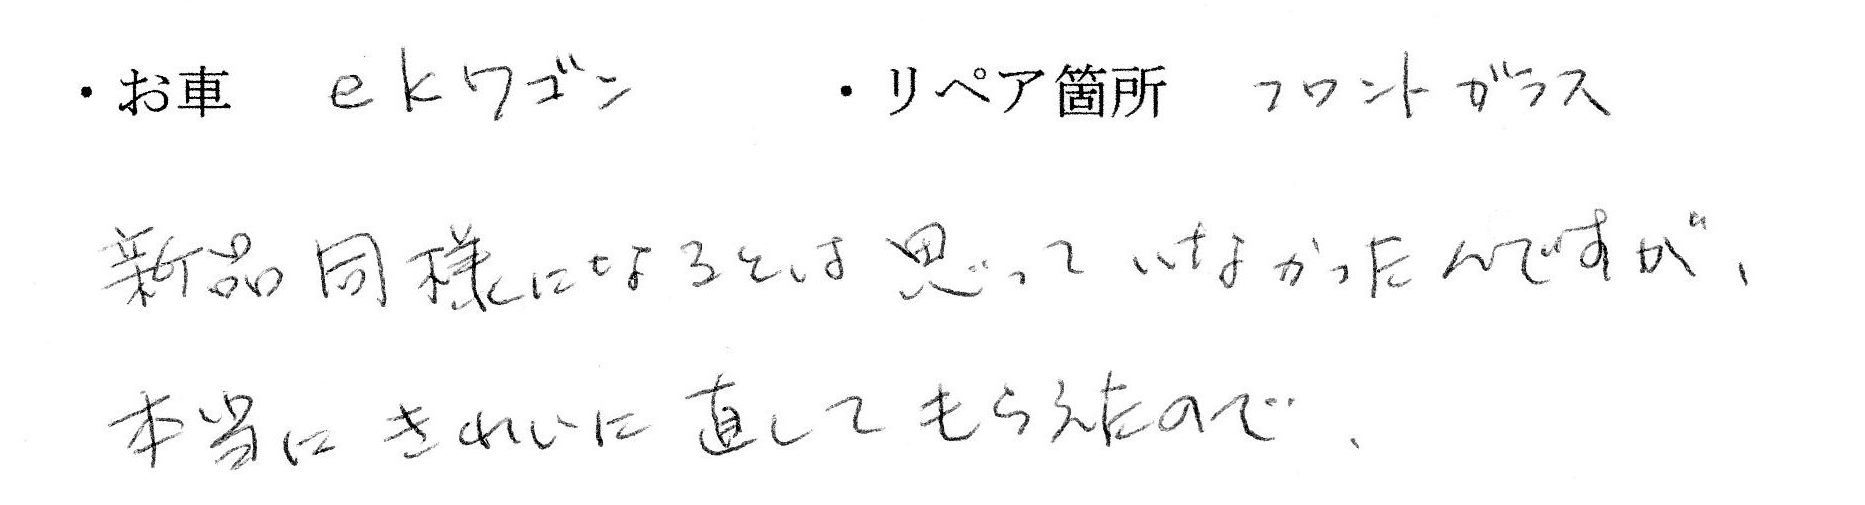 ・お車 ekワゴン ・リペア箇所 フロントガラス
新品同様になるとは思っていなかったんですが、
本当にきれいに直してもらえたので、